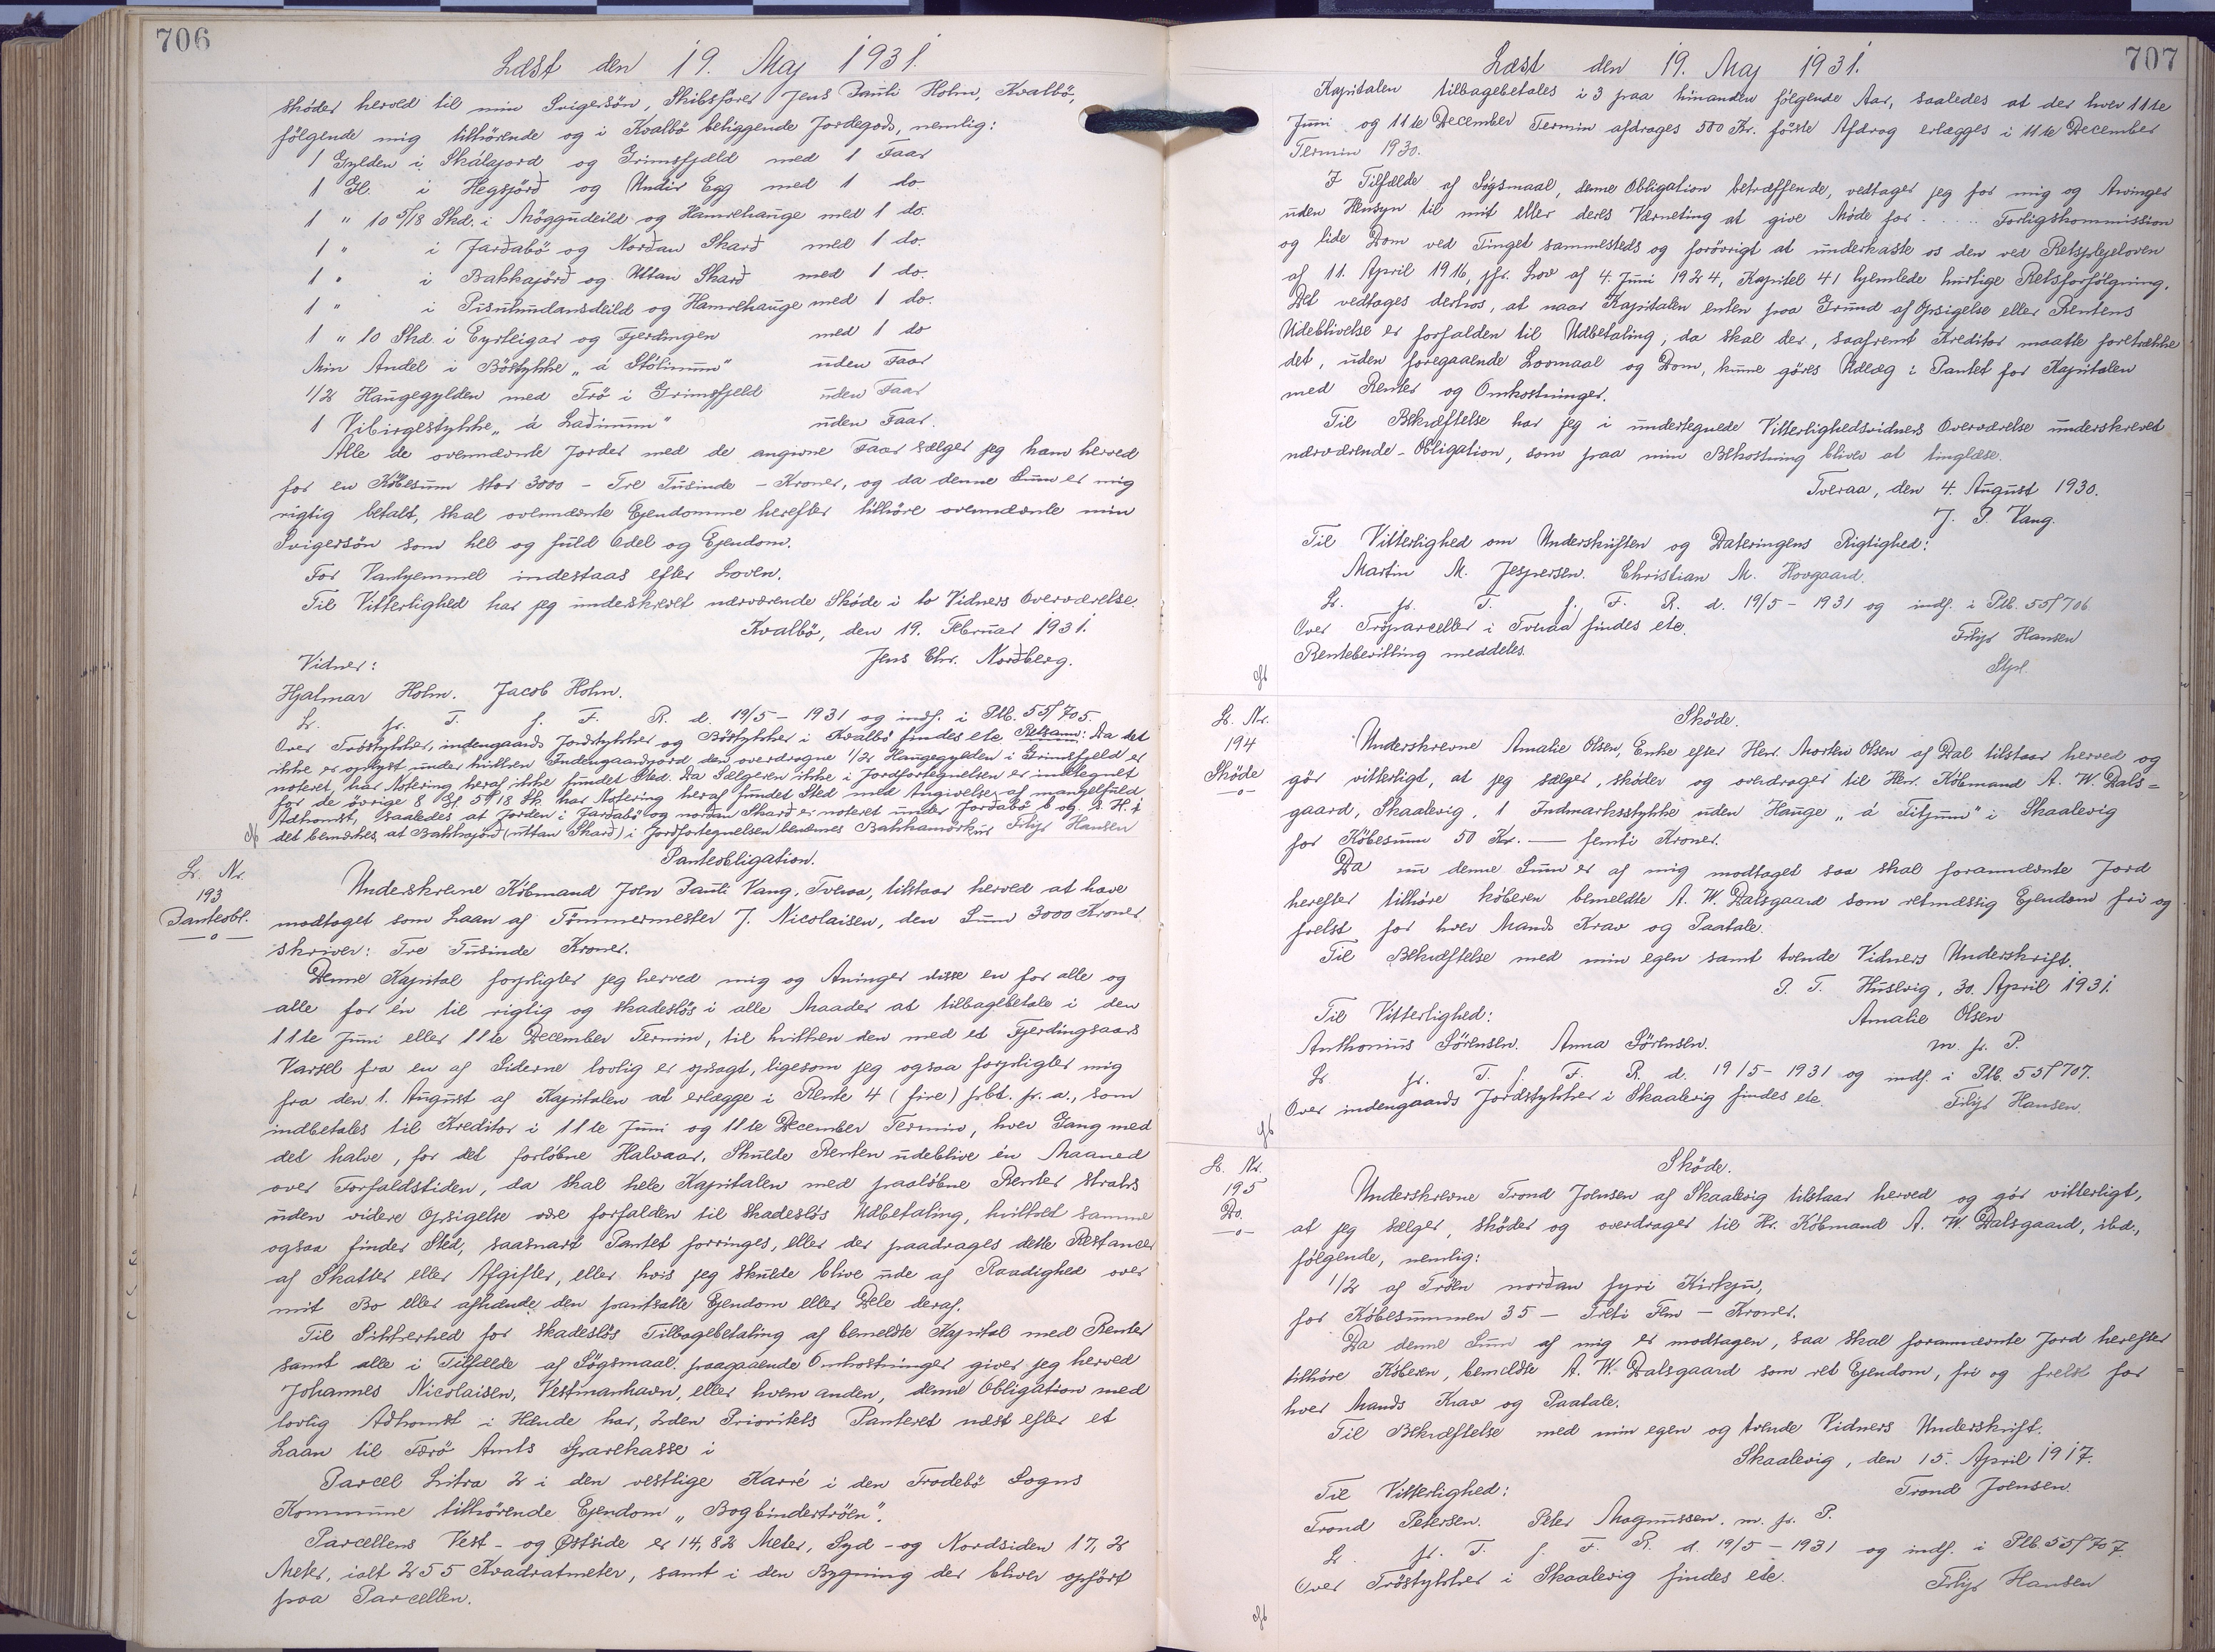 706
Læst den 19. Maj 1931.
skøder herved til min Svigersøn, Skibsfører Jens Pauli Holm, Kvalbö,
følgende mig tilhørende og i Kvalbö beliggende Jordegods, nemlig:
1 Gylden i Skálajord og Grimsfjæld med 1 Faar
1 Gl. i Hegsjørð og Undir Egg med 1 do.
1 " 10 5/18 Skd. i Møggudeild og Hamrehauge med 1 do.
1 " i Jarðabö og Norðan Skarð med 1 do.
1 " i Bakkajørð og Uttan Skarð med 1 do.
1 " i Pisuhundansdeild og Hamrehauge med 1 do.
1 " 10 Skd. i Eyrleigar og Fjerdingen med 1 do
Min Andel i Böstykke „á Stólinum" uden Faar
1/2 Haugegylden med Trö i Grimsfjeld uden Faar
1 Vibirgestykke „á Laðinum" uden Faar.
Alle de ovennævnte Jorder med de angivne Faar sælger jeg ham herved
for en Købesum stor 3000 - Tre Tusinde - Kroner, og da denne Sum er mig
rigtig betalt, skal ovennævnte Ejendomme herefter tilhöre ovennævnte min
Svigersön som hel og fuld Odel og Ejendom.
For Vanhjemmel indestaas efter Loven.
Til Vitterlighed har jeg underskrevet nærværende Skøde i to Vidners Overværelse.
Kvalbö, den 19. Februar 1931.
Vidner: Jens Chr. Norðberg.
Hjalmar Holm. Jacob Holm.
Lr. fr. T. f. F. R. d. 19/5 - 1931 og indf. i Ptb. 55f 705.
Over Tröstykker, indengaards Jordstykker og Böstykker i Kvalbö findes etc. Retsanm: Da det
ikke er oplyst under hvilken Indengaardsjord den overdragne 1/2 Haugegylden i Grimsfjeld er
noteret, har Notering heraf ikke fundet Sted. Da Sælgeren ikke i Jordfortegnelsen er indtegnet
for de øvrige 8 Gl. 5 5/18 Sk. har Notering heraf fundet Sted med Angivelse af mangelfuld
Adkomst, saaledes at Jorden i Jarðabö og norðan Skarð er noteret under Jorðabö b og
det bemærkes, at Bakkajorð (uttan Skarð) i Jordfortegnelsen benævnes Bakkamørkur Filip Hansen
Pantobligation.
Lr. Nr.
193
Panteobl.
Underskrevne Købmand Joen Pauli Vang, Tveraa, tilstaar herved at have
modtaget som Laan af Tömmermester J. Nicolaisen, den Sum 3000 Kroner
skriver: Tre Tusinde Kroner.
Denne Kapital forpligter jeg herved mig og Arvinger disse en for alle og
alle for én til rigtig og skadesløs i alle Maader at tilbagebetale i den
11te Juni eller 11te December Termin, til hvilken den med et Fjerdingsaars
Varsel fra en af Siderne lovlig er opsagt, ligesom jeg ogsaa forpligter mig
fra den 1. August af Kapitalen at erlægge i Rente 4 (fire) pct. pr. a., som
indbetales til Kreditor i 11te Juni og 11te December Termin, hver Gang med
det halve, for det forløbne Halvaar. Skulde Renten udeblive én Maaned
over Forfaldstiden, da skal hele Kapitalen med paaløbne Renter straks
uden videre Opsigelse være forfalden til skadesløs Udbetaling, hvilket samme
ogsaa finder Sted, saasnart Pantet forringes, eller der paadrages dette Restancer
af Skatter eller Afgifter, eller hvis jeg skulde blive ude af Raadighed over
mit Bo eller afhænde den pantsatte Ejendom eller Dele deraf.
Til Sikkerhed for skadesløs Tilbagebetaling af bemeldte Kapital med Renter
samt alle i Tilfælde af Søgsmaal paagaaende Omkostninger giver jeg herved
Johannes Nicolaisen, Vestmanhavn, eller hvem anden, denne Obligation med
lovlig Adkomst i Hænde har, 2den Prioritets Panteret næst efter et
Laan til Færö Amts Sparekasse i
Parcel Litra 2 i den vestlige Karré i den Frodebö Sogns
Kommune tilhørende Ejendom „Bogbindertröen".
Parcellens Vest- og Østside er 14,82 Meter, Syd- og Nordsiden 17,2
Meter, ialt 255 Kvadratmeter, samt i den Bygning der bliver opført
paa Parcellen.
707
Læst den 19. Maj 1931.
Kapitalen tilbagebetales i 3 paa hinanden følgende Aar, saaledes at der hver 11te
Juni og 11te December Termin afdrages 500 Kr. første Afdrag erlægges i 11te December
Termin 1930.
I Tilfælde af Søgsmaal, denne Obligation betræffende, vedtager jeg for mig og Arvinger
uden Hensyn til mit eller deres Værneting at give Møde for . . . . . Forligskommission
og lide Dom ved Tinget sammesteds og forøvrigt at underkaste os den ved Retsplejeloven
af 11. April 1916, jfr. Lov af 4. Juni 1924, Kapitel 41 hjemlede hurtige Retsforfølgning.
Det vedtages derhos, at naar Kapitalen enten paa Grund af Opsigelse eller Rentens
Udeblivelse er forfalden til Udbetaling, da skal der, saafremt Kreditor maatte foretrække
det, uden foregaaende Lovmaal og Dom, kunne gøres Udlæg i Pantet for Kapitalen
med Renter og Omkostninger.
Til Bekræftelse har jeg i undertegnede Vitterlighedsvidners Overværelse underskrevet
nærværende Obligation, som paa min Bekostning bliver at tinglæse.
Tveraa, den 4. August 1930.
J. P. Vang.
Til Vitterlighed om Underskriften og Dateringens Rigtighed:
Martin M. Jespersen. Christian M. Hovgaard.
Lr. fr. T. f. F. R. d. 19/5 - 1931 og indf. i Ptb. 55f 706
Over Tröparceller i Tveraa findes etc.
Filip Hansen
Rentebevilling meddeles.
Stpl.
Skøde.
Lr. Nr.
194
Skøde
Underskrevne Amalie Olsen, Enke efter Henr. Morten Olsen af Dal tilstaar herved og
gør vitterligt, at jeg sælger, skøder og overdrager til Herr. Købmand A. W. Dals=
gaard, Skaalevig, 1 Indmarksstykke uden Hauge „á Titjunn" i Skaalevig
for Købesum 50 Kr. — femti Kroner.
Da nu denne Sum er af mig modtaget saa skal forannævnte Jord
herefter tilhöre köberen bemeldte A. W. Dalsgaard som retmæssig Ejendom fri og
frelst for hver Mands Krav og Paatale.
Til Bekræftelse med min egen samt tvende Vidners Underskrift.
P. T. Husevig, 30. April 1931.
Til Vitterlighed: Amalie Olsen
Anthonius Sörensen. Anna Sörensen. m. p. P.
Lr. fr. T. f. F. R. d. 19/5 - 1931 og indf. i Ptb. 55f 707.
Over indengaards Jordstykker i Skaalevig findes etc. Filip Hansen.
Skøde.
Lr. Nr.
195
Do.
Underskrevne Trond Joensen af Skaalevig tilstaar herved og gør vitterligt,
at jeg sælger, skøder og overdrager til Hr. Købmand A. W. Dalsgaard, ibd.,
følgende, nemlig:
1/2 af Tröen norðan fyri Kirkju,
for Købesummen 35 — Treti Fem — Kroner.
Da denne Sum af mig er modtagen, saa skal forannævnte Jord herefter
tilhöre Köberen, bemeldte A. W. Dalsgaard som ret Ejendom, fri og frelst for
hver Mands Krav og Paatale.
Til Bekræftelse med min egen og tvende Vidners Underskrift.
Skaalevig, den 15. April 1917.
Til Vitterlighed: Trond Joensen.
Trond Petersen. Peter Magnussen. m. p. P.
Lr. fr. T. f. F. R. d. 19/5 - 1931 og indf. i Ptb 55f 707.
Over Tröstykker i Skaalevig findes etc. Filip Hansen